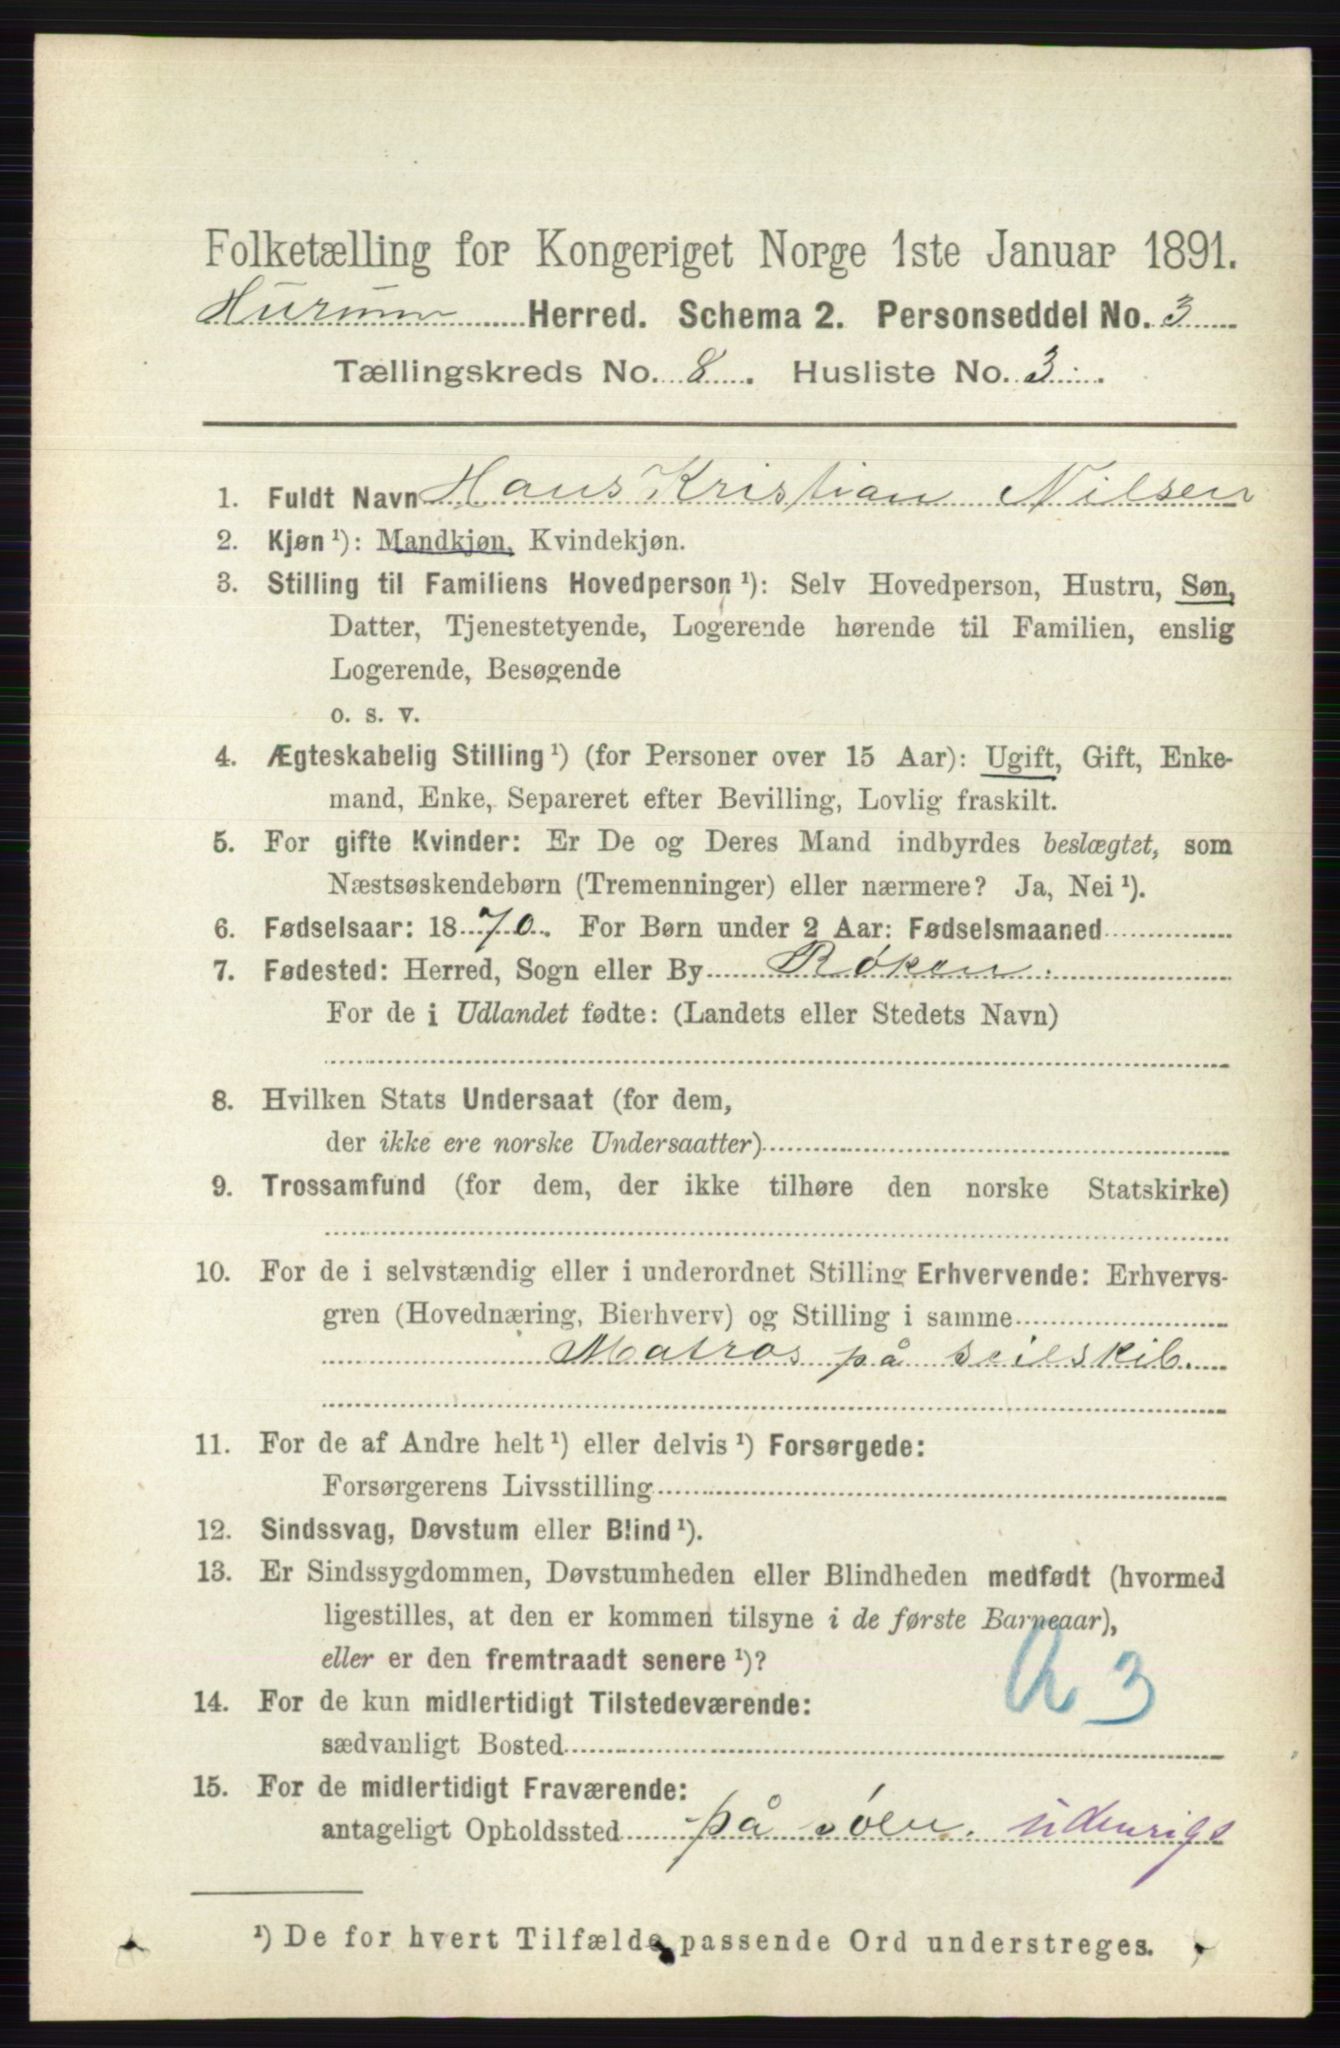 Folketælling for Kongeriget Norge 1ste Januar 1891.
Hurum Herred. Schema 2. Personseddel No. 3
Tællingskreds No. 8. Husliste No. 3.
1. Fuldt Navn Hans Kristian Nilsen
2. Kjøn ¹): Mandkjøn, Kvindekjøn.
3. Stilling til Familiens Hovedperson ¹): Selv Hovedperson, Hustru, Søn,
Datter, Tjenestetyende, Logerende hørende til Familien, enslig
Logerende, Besøgende
o. s. v.
4. Ægteskabelig Stilling ¹) (for Personer over 15 Aar): Ugift, Gift, Enke-
mand, Enke, Separeret efter Bevilling, Lovlig fraskilt.
5. For gifte Kvinder: Er De og Deres Mand indbyrdes beslægtet, som
Næstsøskendebørn (Tremenninger) eller nærmere? Ja, Nei ¹).
6. Fødselsaar: 1870. For Børn under 2 Aar: Fødselsmaaned
7. Fødested: Herred, Sogn eller By Røken.
For de i Udlandet fødte: (Landets eller Stedets Navn)
8. Hvilken Stats Undersaat (for dem,
der ikke ere norske Undersaatter)
9. Trossamfund (for dem, der ikke tilhøre den norske Statskirke)
10. For de i selvstændig eller i underordnet Stilling Erhvervende: Erhvervs-
gren (Hovednæring, Bierhverv) og Stilling i samme
Matros på seilskib.
11. For de af Andre helt ¹) eller delvis ¹) Forsørgede:
Forsørgerens Livsstilling
12. Sindssvag, Døvstum eller Blind ¹).
13. Er Sindssygdommen, Døvstumheden eller Blindheden medfødt (hvormed
ligestilles, at den er kommen tilsyne i de første Barneaar),
eller er den fremtraadt senere ¹)?
14. For de kun midlertidigt Tilstedeværende:
sædvanligt Bosted
15. For de midlertidigt Fraværende:
antageligt Opholdssted på søen. udenrigs
¹) De for hvert Tilfælde passende Ord understreges.